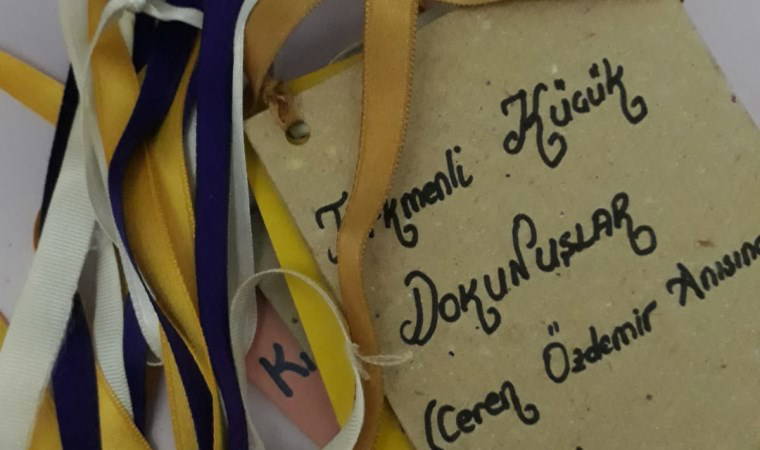 Türkmenli Küçük
DOKUNUŞLAR
(Ceren Özdemir Anısın
Ki